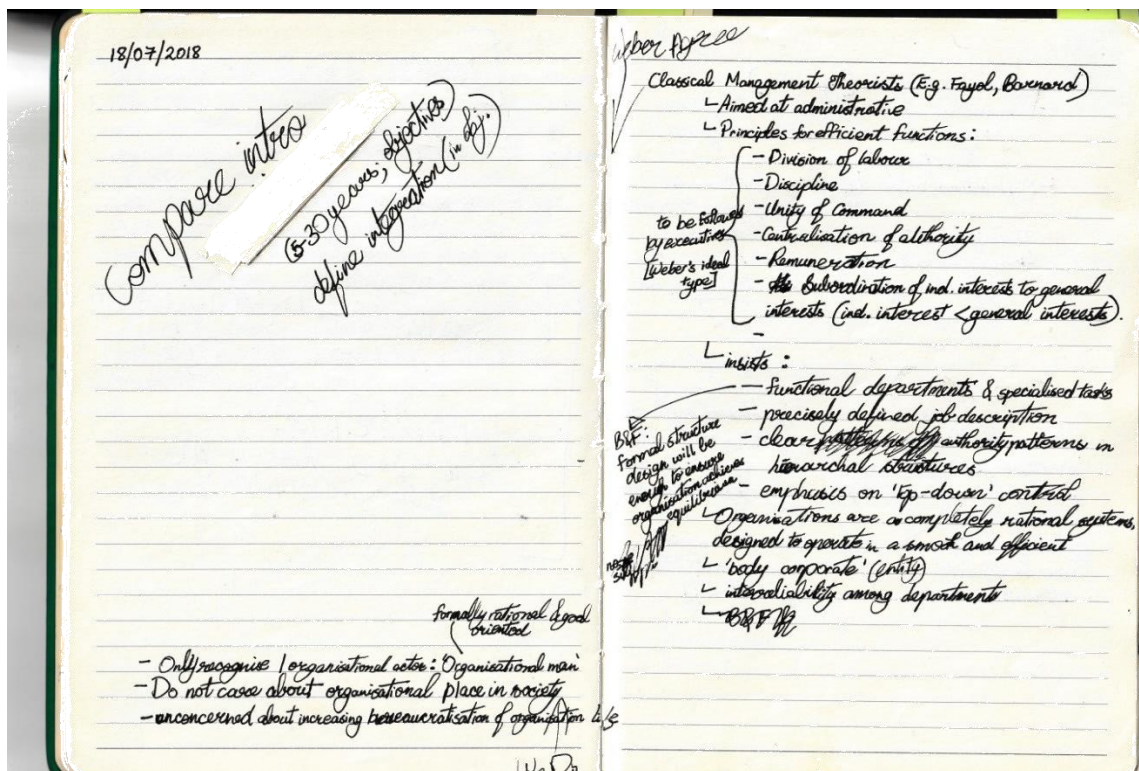 18/07/2018
Compare intro
(5-30 years; objectives)
define integration (in obj.)
formally rational & goal
oriented
- Only recognise 1 organisational actor: 'Organisational man'
- Do not care about organisational place in society
- unconcerned about increasing bureaucratisation of organisation life
Weber Agree
Classical Management Theorists (E.g. Fayol, Barnard)
Aimed at administrative
Principles for efficient functions:
- Division of labour
- Discipline
- Unity of Command
- Centralisation of authority
- Remuneration
- Subordination of ind. interests to general
interests (ind. interest < general interests).
-
to be followed
by executives
[Weber's ideal
type]
insists:
- functional departments & specialised tasks
- precisely defined job description
- clear authority patterns in
hierarchal structures
- emphasis on 'top-down' control
B&F:
Formal structure
design will be
enough to ensure
organisation achieves
equilibrium
Organisations are completely rational systems,
designed to operate in a smooth and efficient
'body corporate' (entity)
interreliability among departments